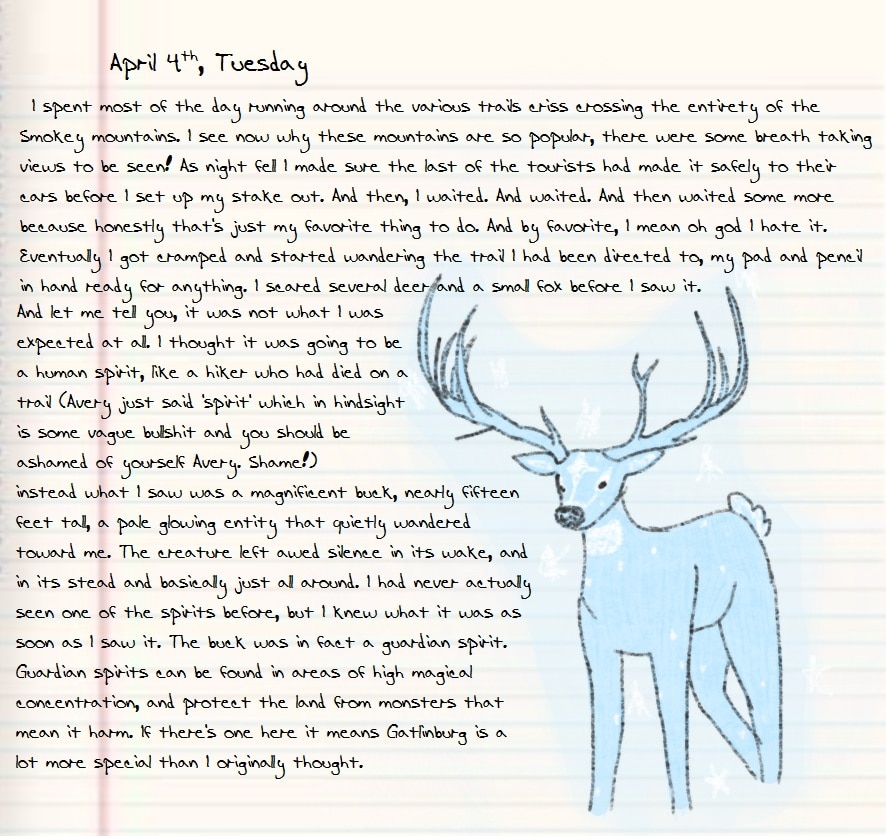 April 4th, Tuesday
I spent most of the day running around the various trails criss crossing the entirety of the
Smokey mountains. I see now why these mountains are so popular, there were some breath taking
views to be seen! As night fell I made sure the last of the tourists had made it safely to their
cars before I set up my stake out. And then, I waited. And waited. And then waited some more
because honestly that's just my favorite thing to do. And by favorite, I mean oh god I hate it.
Eventually I got cramped and started wandering the trail I had been directed to, my pad and pencil
in hand ready for anything. I scared several deer and a small fox before I saw it.
And let me tell you, it was not what I was
expected at all. I thought it was going to be
a human spirit, like a hiker who had died on a
trail (Avery just said 'spirit' which in hindsight
is some vague bullshit and you should be
ashamed of yourself Avery. Shame!)
instead what I saw was a magnificent buck, nearly fifteen
feet tall, a pale glowing entity that quietly wandered
toward me. The creature left awed silence in its wake, and
in its stead and basically just all around. I had never actually
seen one of the spirits before, but I knew what it was as
soon as I saw it. The buck was in fact a guardian spirit.
Guardian spirits can be found in areas of high magical
concentration, and protect the land from monsters that
mean it harm. If there's one here it means Gatlinburg is a
lot more special than I originally thought.